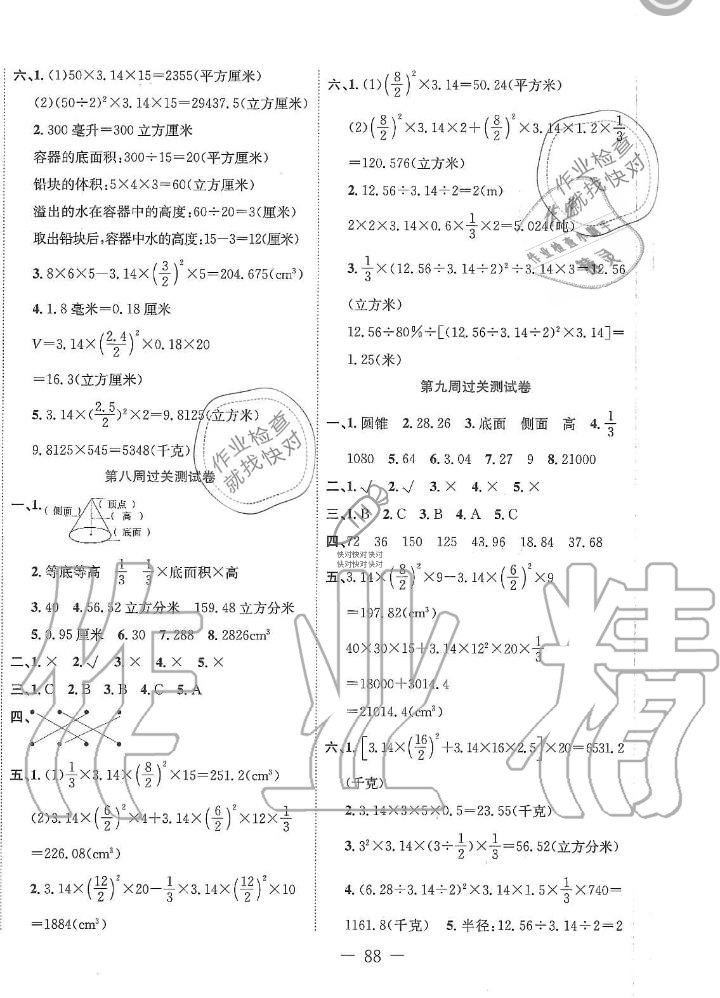 六、1. (1)50×3.14×15=2355(平方厘米)
(2)(50÷2)²×3.14×15=29437.5(立方厘米)
2. 300毫升=300立方厘米
容器的底面积:300÷15=20(平方厘米)
铅块的体积:5×4×3=60(立方厘米)
溢出的水在容器中的高度:60÷20=3(厘米)
取出铅块后,容器中水的高度:15-3=12(厘米)
3. 8×6×5-3.14×(3/2)²×5=204.675(cm³)
4. 1.8毫米=0.18厘米
V=3.14×(2.4/2)²×0.18×20
=16.3(立方厘米)
5. 3.14×(2.5/2)²×2=9.8125(立方米)
9.8125×545=5348(千克)
第八周过关测试卷
一、1. (侧面) (顶点) (高) (底面)
2. 等底等高 1/3 1/3×底面积×高
3. 40 4. 56.52立方分米 159.48立方分米
5. 0.95厘米 6. 30 7. 288 8. 2826cm³
二、1. × 2. √ 3. × 4. × 5. ×
三、1. C 2. B 3. B 4. C 5. A
四、
五、1. (1)1/3×3.14×(8/2)²×15=251.2(cm³)
(2)3.14×(6/2)²×4+3.14×(6/2)²×12×1/3
=226.08(cm³)
2. 3.14×(12/2)²×20-1/3×3.14×(12/2)²×10
=1884(cm³)
六、1. (1)(8/2)²×3.14=50.24(平方米)
(2)(8/2)²×3.14×2+(8/2)²×3.14×1.2×1/3
=120.576(立方米)
2. 12.56÷3.14÷2=2(m)
2×2×3.14×0.6×1/3×2=5.024(吨)
3. 1/3×(12.56÷3.14÷2)²×3.14×3=12.56
(立方米)
12.56÷80%÷[(12.56÷3.14÷2)²×3.14]=
1.25(米)
第九周过关测试卷
一、1. 圆锥 2. 28.26 3. 底面 侧面 高 4. 1/3
1080 5. 64 6. 3.04 7. 27 9 8. 9 9. 21000
二、1. √ 2. √ 3. × 4. × 5. ×
三、1. B 2. C 3. B 4. A 5. C
四、72 36 150 125 43.96 18.84 37.68
五、3.14×(8/2)²×9-3.14×(6/2)²×9
=197.82(cm³)
40×30×15+3.14×12²×20×1/3
=18000+3014.4
=21014.4(cm³)
六、1. [3.14×(16/2)²+3.14×16×2.5]×20=6531.2
(千克)
2. 3.14×3×5×0.5=23.55(千克)
3. 3²×3.14×(3÷1/2)×1/3=56.52(立方分米)
4. (6.28÷3.14÷2)²×3.14×1.5×1/3×740=
1161.8(千克) 5. 半径:12.56÷3.14÷2=2
— 88 —
作业检查
就找快对
作业检查
就找快对
快对快对快对
快对快对快对
作业精